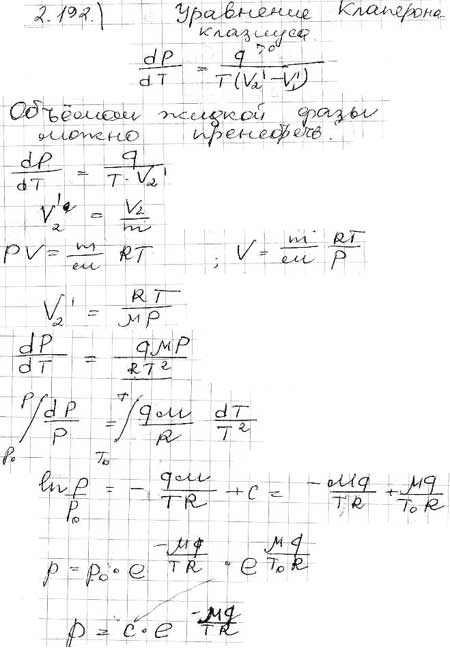 2.192.) Уравнение Клаперона
клазиуса
dP/dT = q^{>0}/T(V₂' - V₁')
Объёмом жидкой фазы
можно пренебреч.
dP/dT = q/T·V₂'
V₂' = V₂/m
PV = m/м RT ; V = m/м RT/P
V₂' = RT/МP
dP/dT = qМP/RT²
P₀∫ᴾ dP/P = T₀∫ᵀ qм/R dT/T²
ln P/P₀ = - qм/TR + c = -Мq/TR + Мq/T₀R
p = p₀ · e^{-Мq/TR} · e^{Мq/T₀R}
p = c · e^{-Мq/TR}